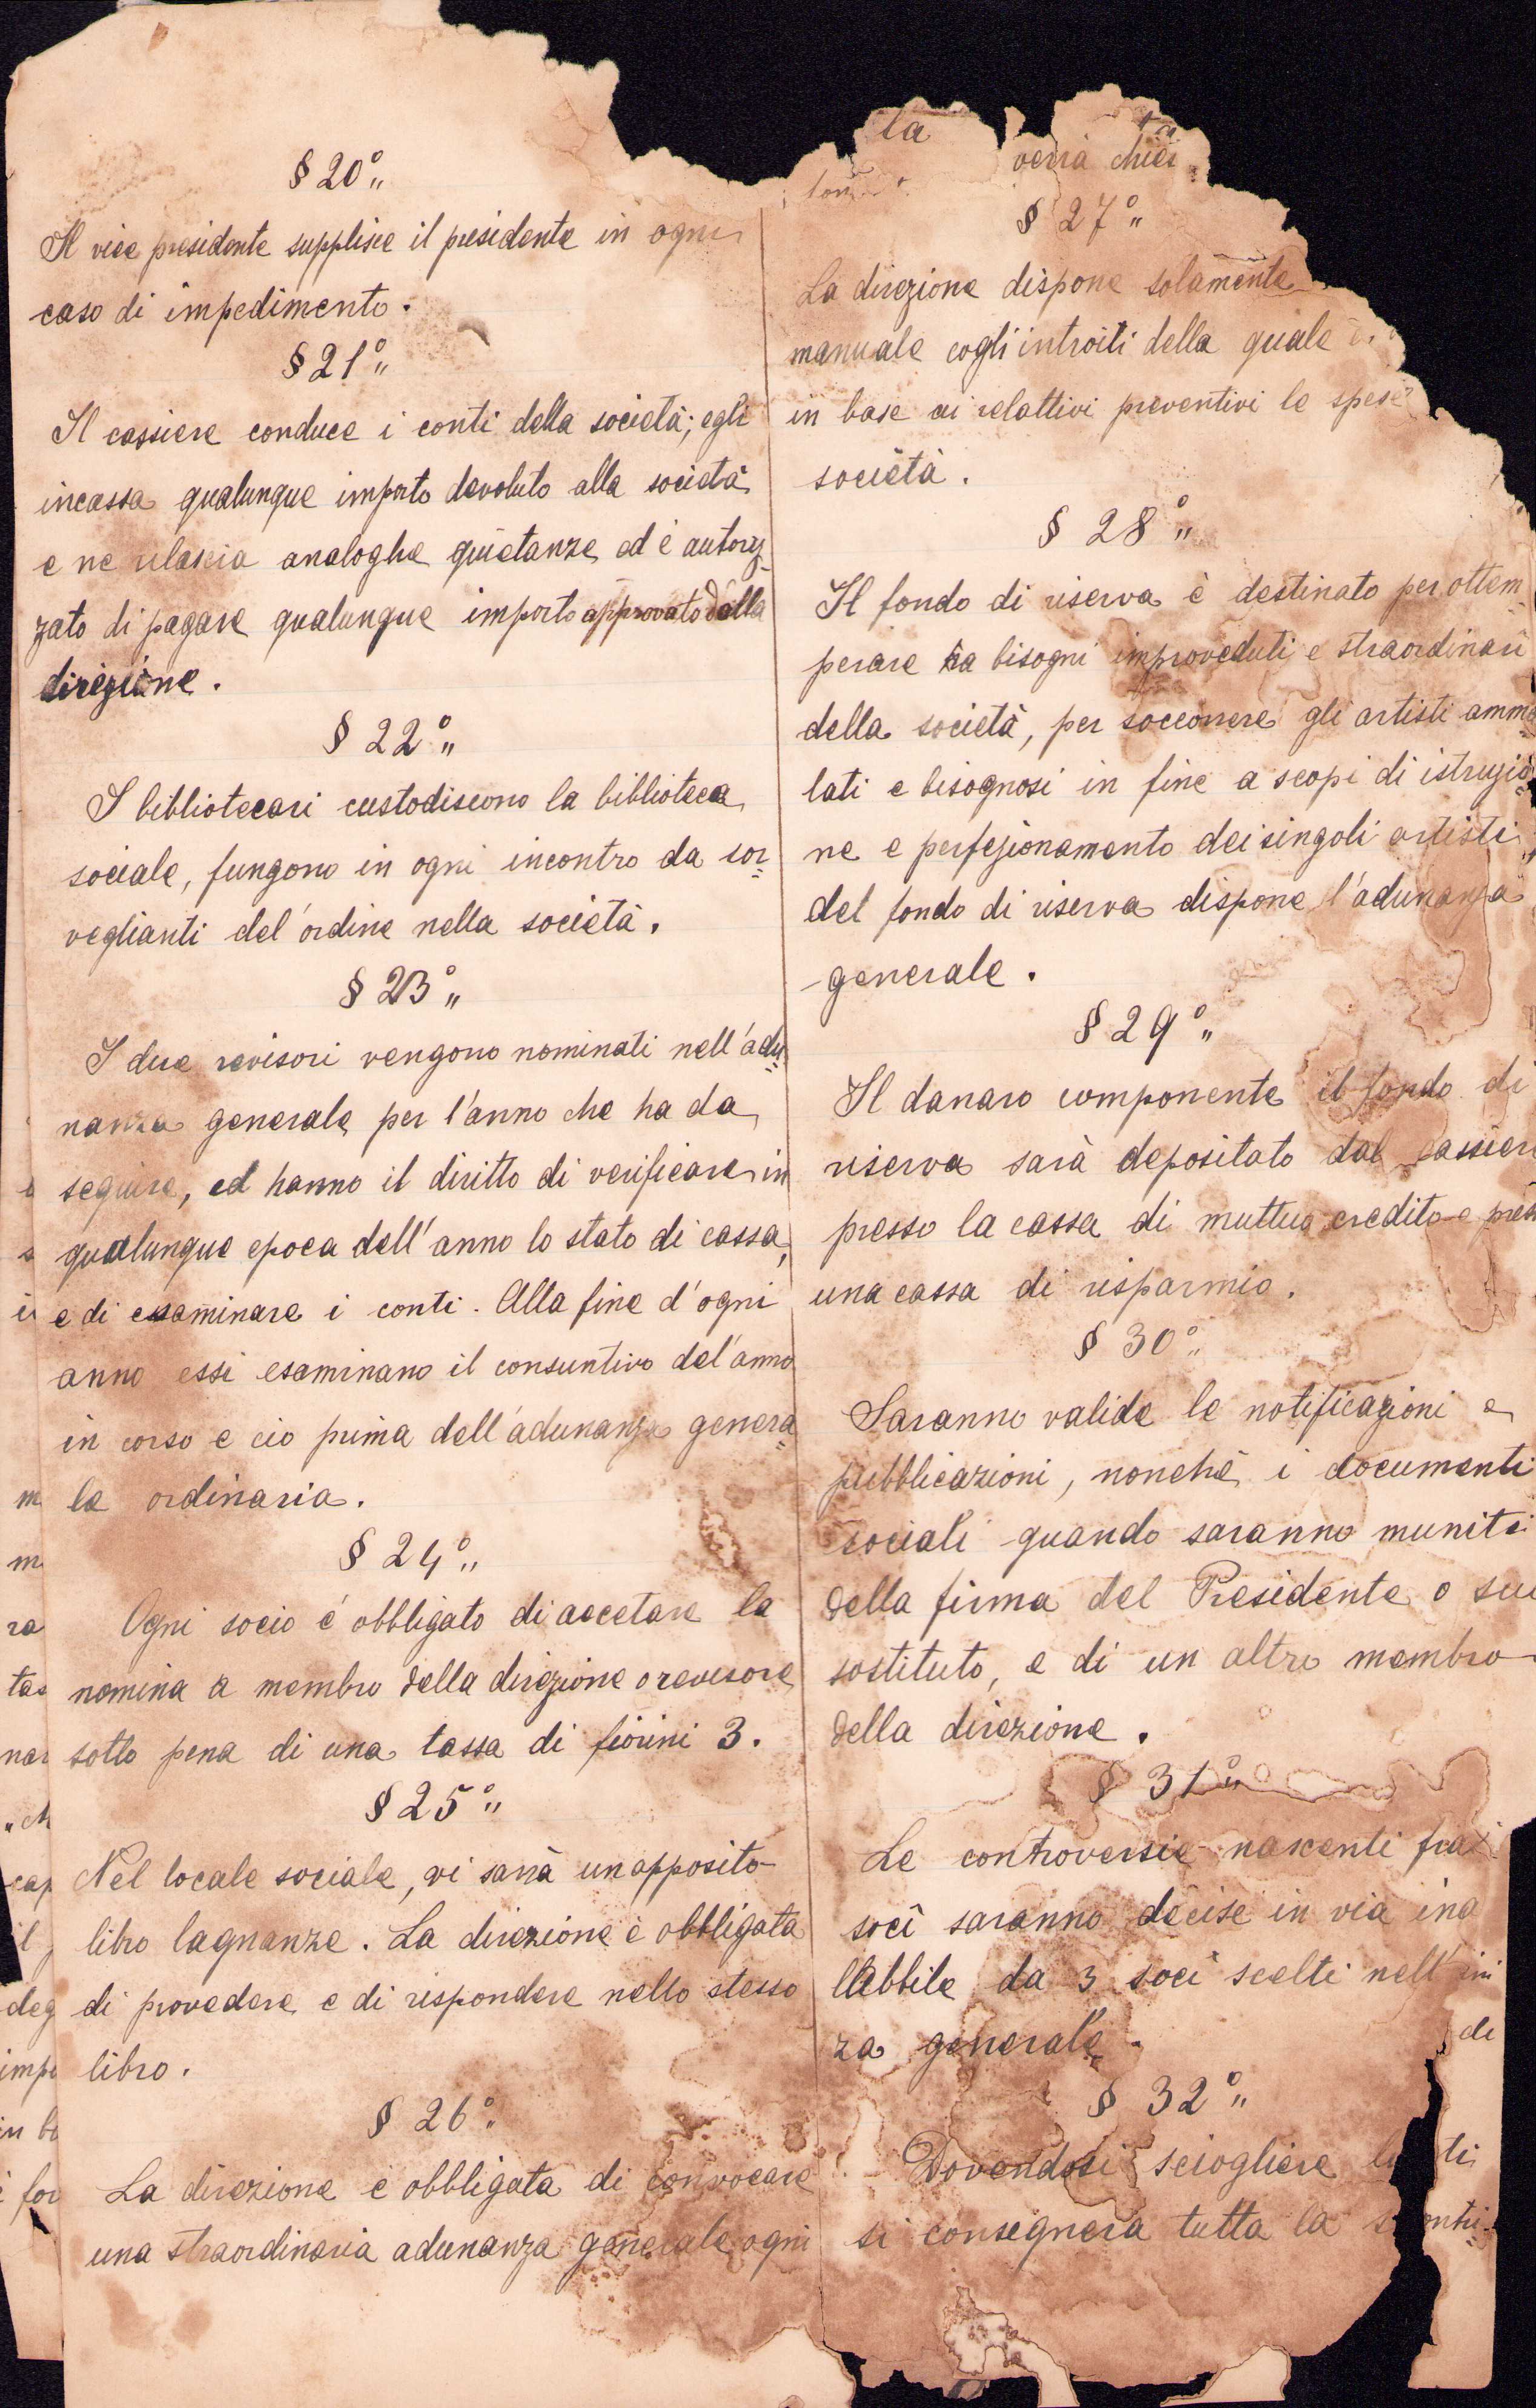 § 20°„
Il vice presidente supplisce il presidente in ogni
caso di impedimento.
§ 21°„
Il cassiere conduce i conti della società; egli
incassa qualunque importo devoluto alla società
e ne rilascia analoghe quietanze ed è autoriz-
zato di pagare qualunque importo approvato dalla
direzione.
§ 22°„
I bibliotecari custodiscono la biblioteca
sociale, fungono in ogni incontro da sor-
veglianti del'ordine nella società.
§ 23°„
I due revisori vengono nominati nell'adu-
nanza generale per l'anno che ha da
seguire, ed hanno il diritto di verificare in
qualunque epoca dell'anno lo stato di cassa,
e di esaminare i conti. Alla fine d'ogni
anno essi esaminano il consuntivo del'anno
in corso e cio prima dell'adunanza genera-
le ordinaria.
§ 24°„
Ogni socio é obbligato di accetare la
nomina a membro della direzione o revisore
sotto pena di una tassa di fiorini 3.
§ 25°„
Nel locale sociale, vi sarrà un apposito
libro lagnanze. La direzione è obbligata
di provedere e di rispondere nello stesso
libro.
§ 26°„
La direzione é obbligata di convocare
una straordinaria adunanza generale ogni
la
verrà chies
§ 27°„
La direzione dispone solamente
manuale cogli introiti della quale
in base ai relattivi preventivi le spese
società.
§ 28°„
Il fondo di riserva è destinato per ottem-
perare a bisogni improveduti e straordinari
della società, per soccorrere gli artisti amma-
lati e bisognosi in fine a scopi di istruzio-
ne e perfezionamento dei singoli artisti,
del fondo di riserva dispone l'adunanza
generale.
§ 29°„
Il danaro componente il fondo di
riserva sarà depositato dal cassier
presso la cassa di muttuo credito e pres
una cassa di risparmio.
§ 30°„
Saranno valide le notificazioni e
pubblicazioni, nonchè i documenti
sociali quando saranno muniti
della firma del Presidente o suo
sostituto, e di un altro membro
della direzione.
§ 31°„
Le controversie nascenti fra i
soci saranno decise in via ina
llabbile da 3 soci scelti nell'
za generale.
§ 32°„
Dovendosi sciogliere
si consegnera tutta la